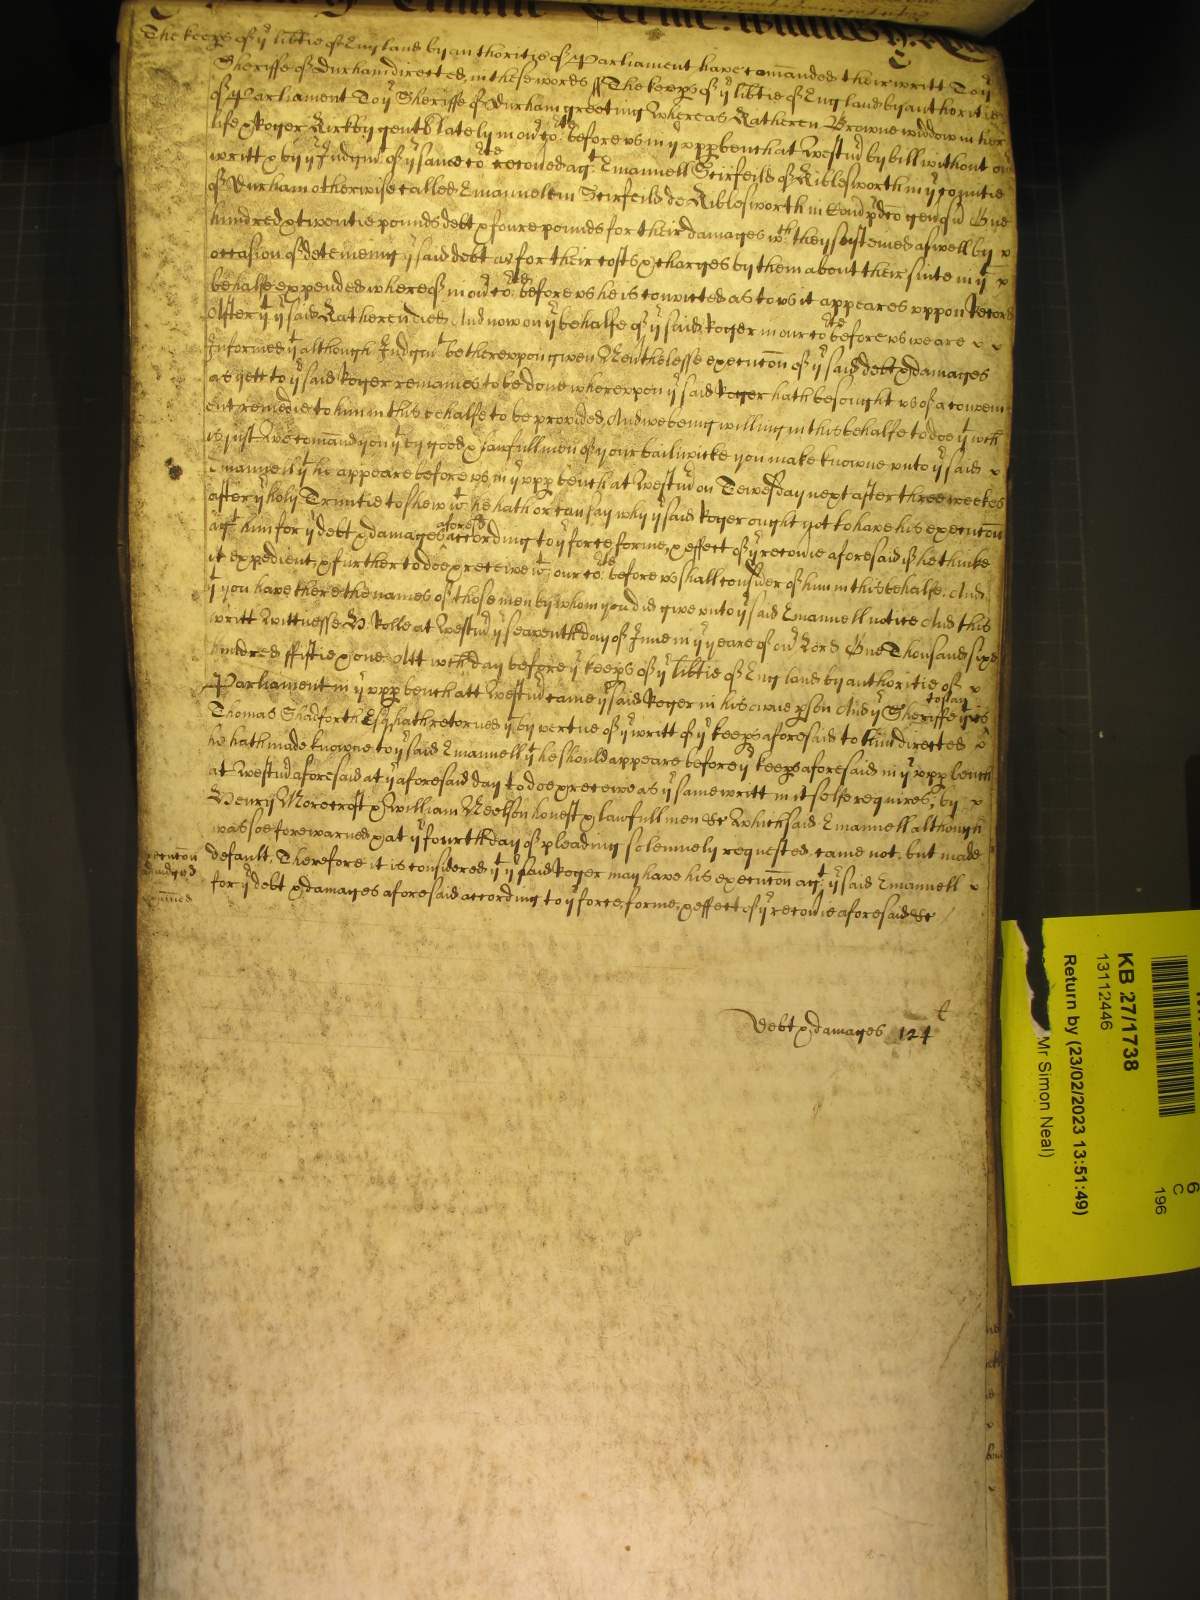 The keeps of ye libtie of England by authoritie of Parliament have comanded their writt To ye
Sheriffe of Durham directed in these words ss The keeps of ye libtie of England by authoritie
of Parliament To ye Sheriffe of Durham greeting Whereas Katheren Browne widdow in her
life & Roger Kirkby gent lately in our Cote before us in ye upp bench at Westmr by bill without our
writt & by ye Judgmt of ye same Cote recoued agt Emanuell Scirfeild of Kiblesworth in ye countie
of Durham otherwise called Emanuelem Scirfeild de Kiblesworth in Com pdco gen One
hundred & twentie pounds debt & foure pounds for their damages wch they susteined aswell by
occasion of deteineing ye said debt as for their costs & charges by them about their suite in yt
behalfe expended whereof in our Cote before us he is convicted as to us it appeares uppon Record
After yt ye said Katheren died And now on ye behalfe of ye said Roger in our Cote before us we are
Informed yt although Judgmt be thereupon given Neuthelesse execucon of ye said debt & damages
as yett to ye said Roger remaines to be done whereupon ye said Roger hath besought us of a conveni
ent remedie to him in this behalfe to be provided And we being willing in this behalfe to doe yt wch
is just We comand you yt by good & lawfull men of your bailiwicke you make knowne unto ye said
Emanuell yt he appeare before us in ye upp bench at Westmr on Tewesday next after three weekes
after ye holy Trinitie to shew if he hath or can say why ye said Roger ought not to have his execucon
agt him for ye debt & damages aforesd according to ye force forme, & effect of ye recouie aforesaid if he thinke
it expedient, & further to doe & receive wt our Cote before us shall consider of him in this behalfe. And
yt you have there the names of those men by whom you did give unto ye said Emanuell notice And this
writt Wittnesse H: Rolle at Westmr ye seaventh day of June in ye yeare of our Lord One Thousand six
hundred fiftie & one. Att wch day before ye keeps of ye libtie of England by authoritie of
Parliament in ye upp bench att Westmr came ye said Roger in his owne pson And ye Sheriffe to say
Thomas Shadforth Esq hath retorned yt by vertue of ye writt of ye keeps aforesaid to him directed
he hath made knowne to ye said Emanuell yt he should appeare before ye keeps aforesaid in ye upp bench
at Westmr aforesaid at ye aforesaid day to doe & receive as ye same writt in it selfe requires, by
Henry Morecroft & William Neelson honest & lawfull men &c Which said Emanuell although
was soe forewarned & at ye fourth day of pleading solemnely requested came not, but made
default, Therefore it is considered yt ye said Roger may have his execucon agt ye said Emanuell
for ye debt & damages aforesaid according to ye force, forme, & effect of ye recouie aforesaid &c
Debt & damages 124 l
KB 27/1738
13112446
Return by (23/02/2023 13:51:49)
Mr Simon Neal)
6
C
196